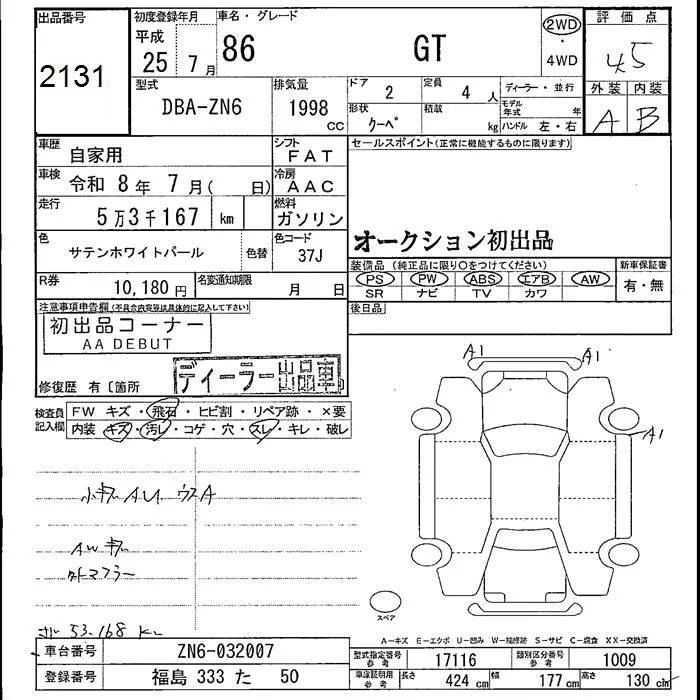 出品番号
2131
初度登録年月
平成
25 7月
車名・グレード
86 GT
2WD
・
4WD
評価点
4.5
外装 内装
A B
型式
DBA-ZN6
排気量
1998
CC
ドア
2
定員
4 人
形状
クーペ
積載
kg
ディーラー・並行
モデル年式 年
ハンドル 左・右
車歴
自家用
シフト
FAT
車検
令和 8年 7月( 日)
冷房
AAC
走行
5万3千167 km
燃料
ガソリン
色
サテンホワイトパール
色替
色コード
37J
R券
10,180円
名変通知期限
月 日
セールスポイント(正常に機能するものに限ります)
オークション初出品
装備品(純正品に限り○をつけてください)
PS PW ABS エアB AW
SR ナビ TV カワ
新車保証書
有・無
後日品
注意事項申告欄(不具合内容等は具体的に記入して下さい)
初出品コーナー
AA DEBUT
ディーラー出品車
修復歴 有〔箇所
検査員
記入欄
FW キズ・飛石・ヒビ割・リペア跡・×要
内装 キズ・汚レ・コゲ・穴・スレ・キレ・破レ
小キズ AU ウスA
AWキズ
外マフラー
53.168 Km
A1 A1
A1
スペア
A-キズ E-エクボ U-凹み W-補修跡 S-サビ C-腐食 XX-交換済
車台番号
ZN6-032007
登録番号
福島 333 た 50
型式指定番号
参考
17116
類別区分番号
参考
1009
車庫証明用
参考
長さ
424 cm
幅
177 cm
高さ
130 cm